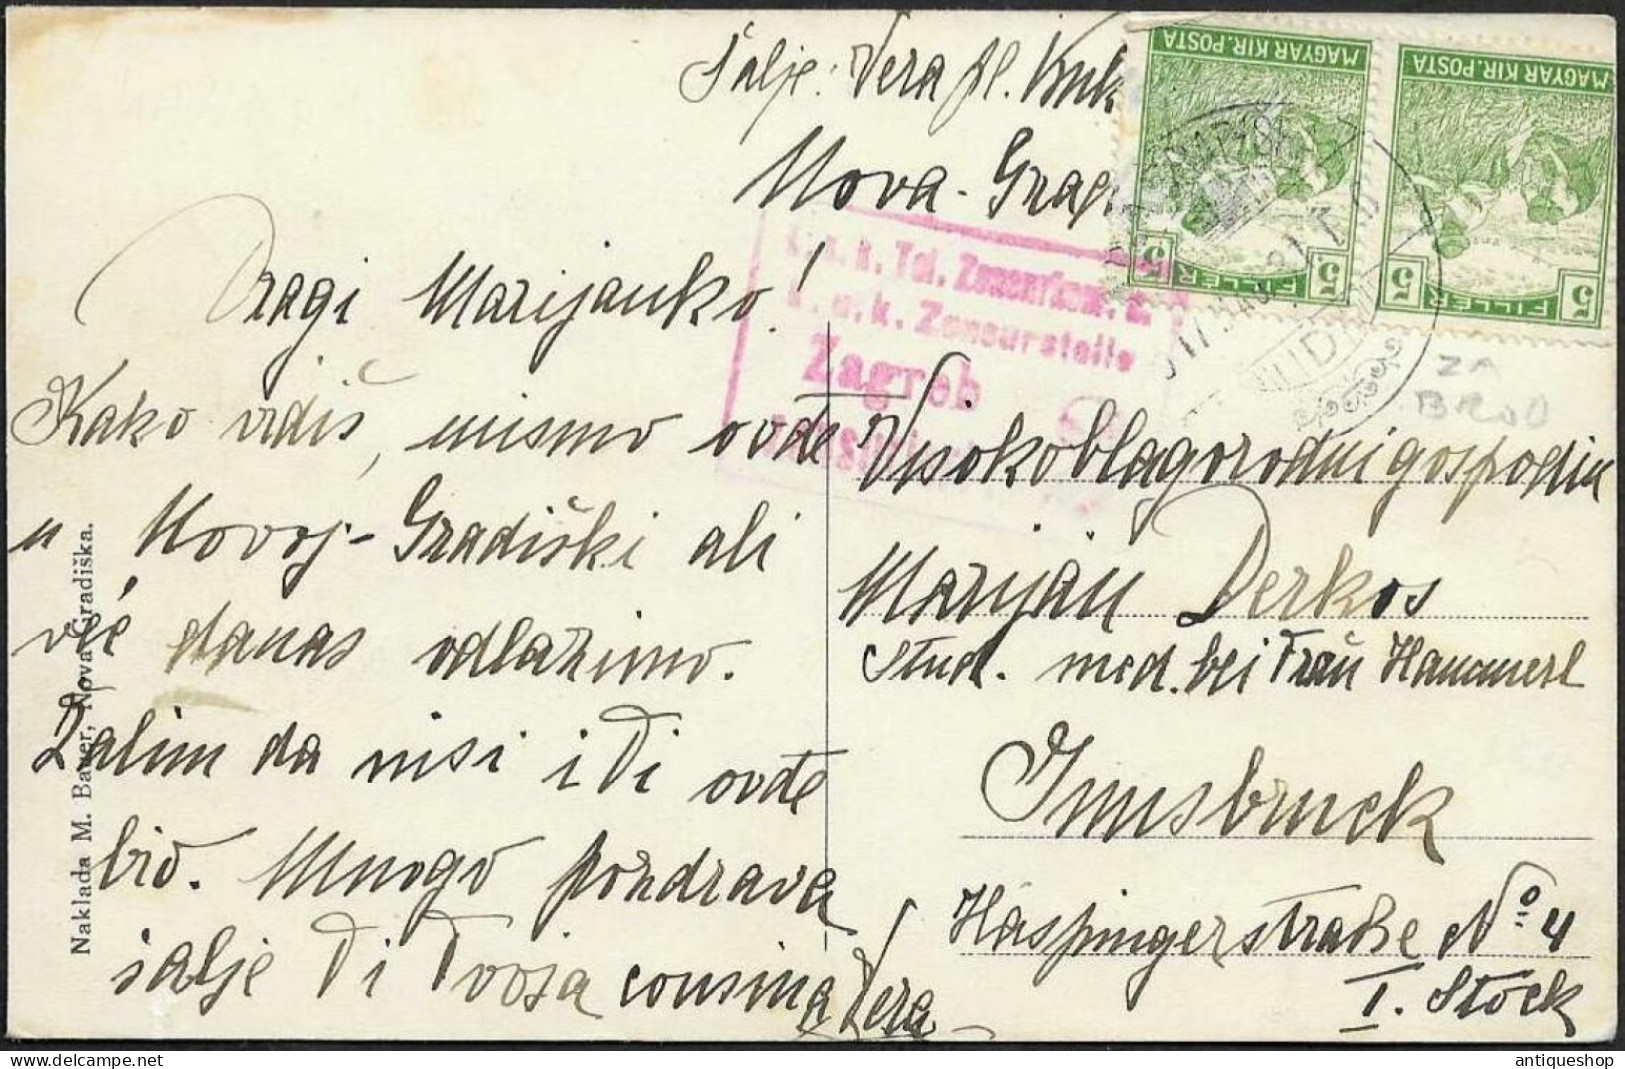 Šalje: Vera pl. Vuk
Nova-Grad
Dragi Marijanko!
Kako vidiš, nismo ovđe
u Novoj-Gradiški ali
već danas odlazimo.
Žalim da nisi i Di ovđe
bio. Mnogo pozdrava
šalje Di Tvoja cousina Vera
Naklada M. Bauer, Nova Gradiška.
MAGYAR KIR. POSTA
5 FILLÉR 5
MAGYAR KIR. POSTA
5 FILLÉR 5
k. u. k. Tel. Zensurkom. u.
k. u. k. Zensurstelle
Zagreb
ZA
BROD
Visokoblagorodni gospodin
Marijan Derkos
Stud. med. bei Frau Hammerl
Innsbruck
Haspingerstraße No 4
I. Stock
antiqueshop